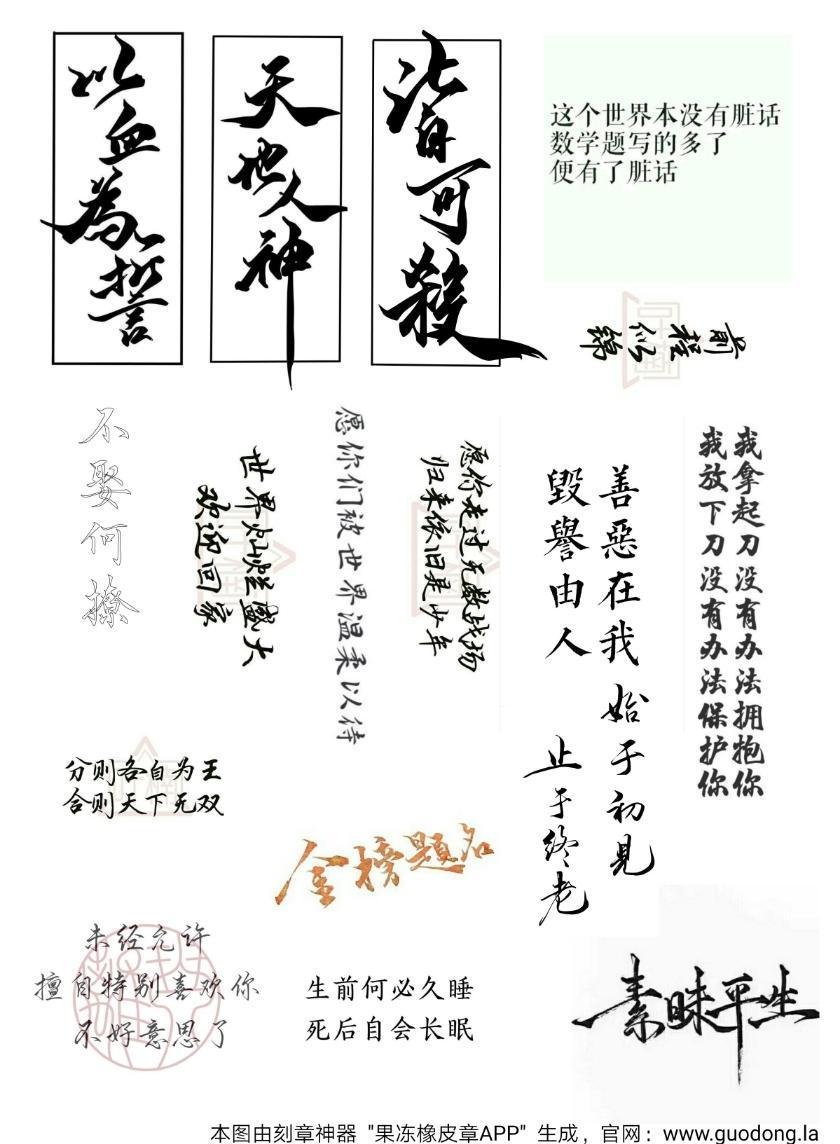 以血為誓
天地人神
皆可殺
这个世界本没有脏话
数学题写的多了
便有了脏话
前程似锦
不娶何撩
世界灿烂盛大
欢迎回家
愿你们被世界温柔以待
愿你走过无数战场
归来依旧是少年
善惡在我
毀譽由人
始于初見
止于终老
我拿起刀没有办法拥抱你
我放下刀没有办法保护你
分则各自为王
合则天下无双
金榜題名
未经允许
擅自特别喜欢你
不好意思了
生前何必久睡
死后自会长眠
素昧平生
本图由刻章神器 "果冻橡皮章APP" 生成，官网：www.guodong.la